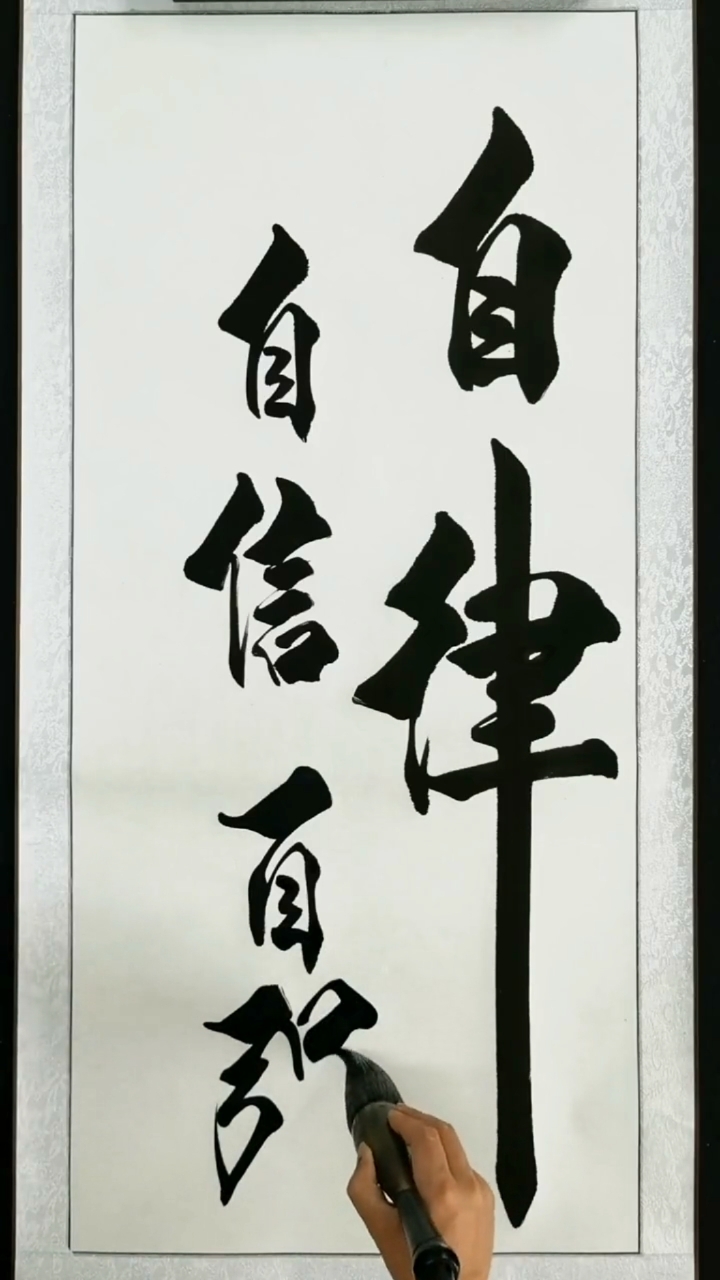 自律
自信自